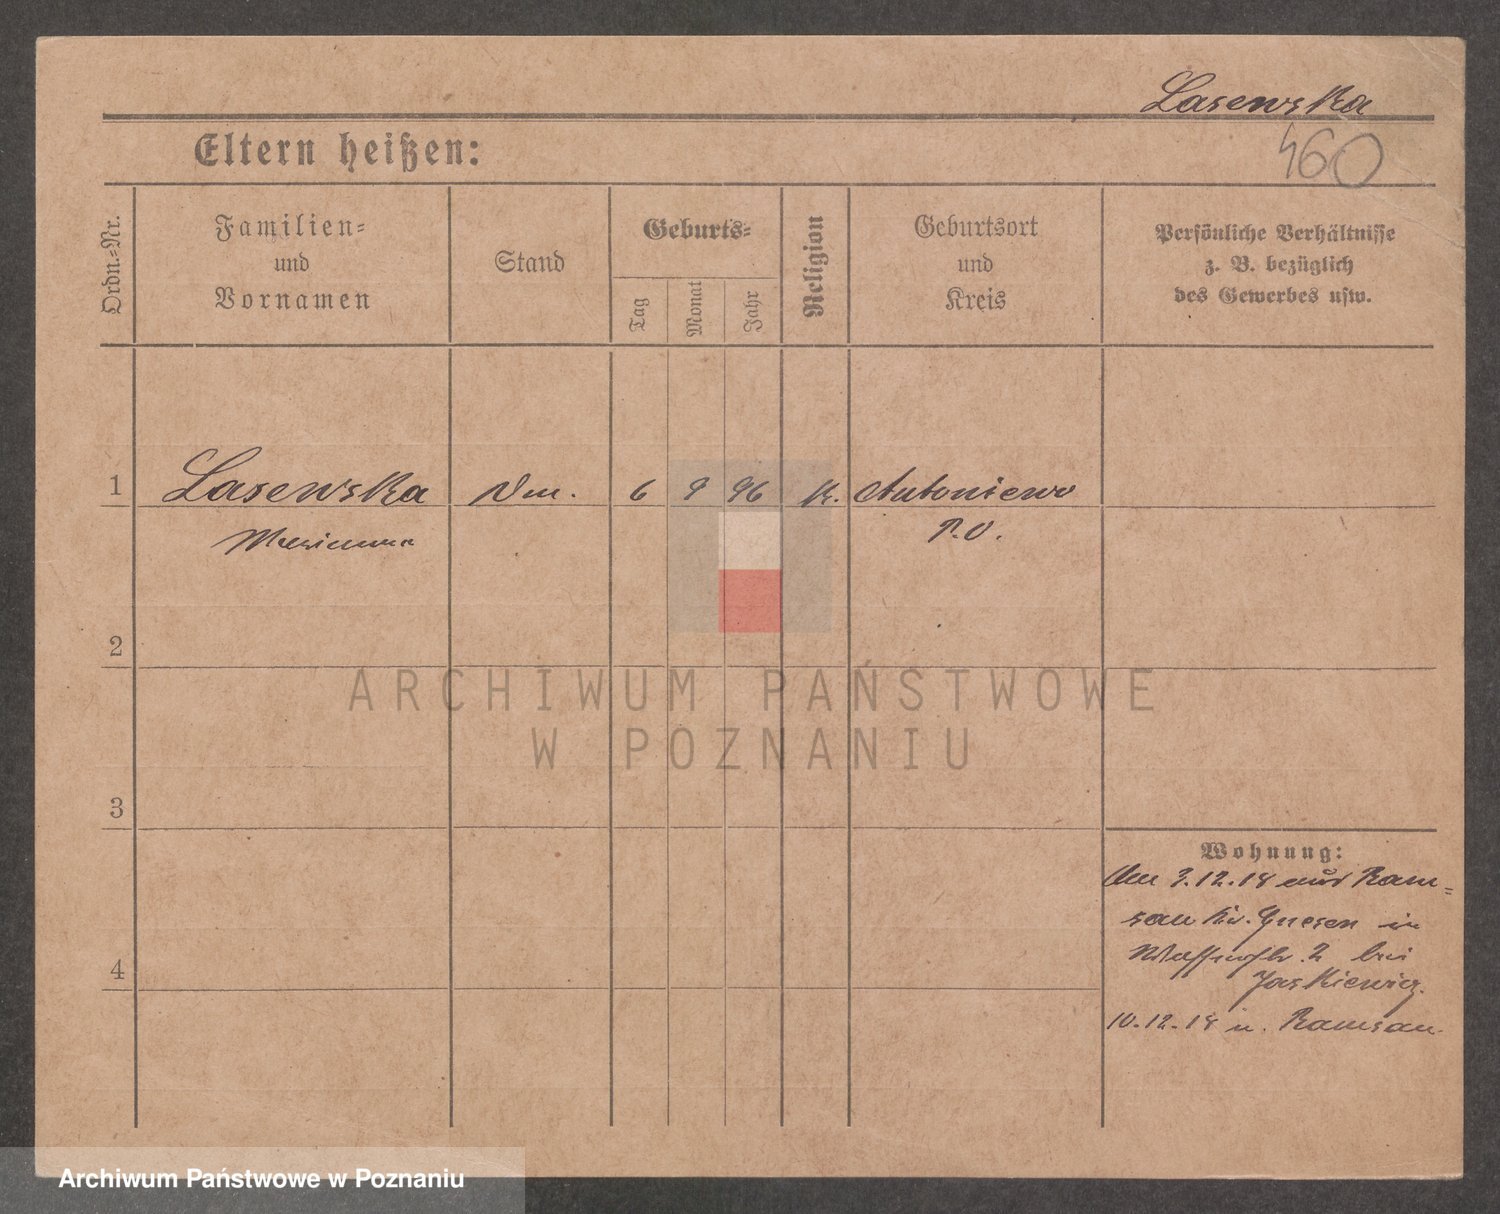 Lasewska
460
Eltern heißen:
Ordn.-Nr.
Familien-
und
Vornamen
Stand
Geburts-
Tag
Monat
Jahr
Religion
Geburtsort
und
Kreis
Persönliche Verhältnisse
z. B. bezüglich
des Gewerbes usw.
1 Lasewska 6 9 96 K. Antoniewo
P.O.
2
ARCHIWUM PAŃSTWOWE
W POZNANIU
3
Wohnung:
3.12.18 aus Ram-
sau Kr. Gnesen in
2 bei
Jaskiewicz.
4
10.12.18 n. Ramsau
Archiwum Państwowe w Poznaniu